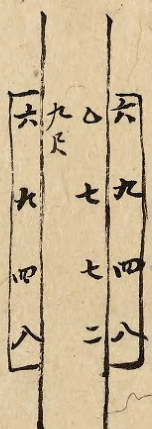 六九四八
七七二
九尺
六九四八